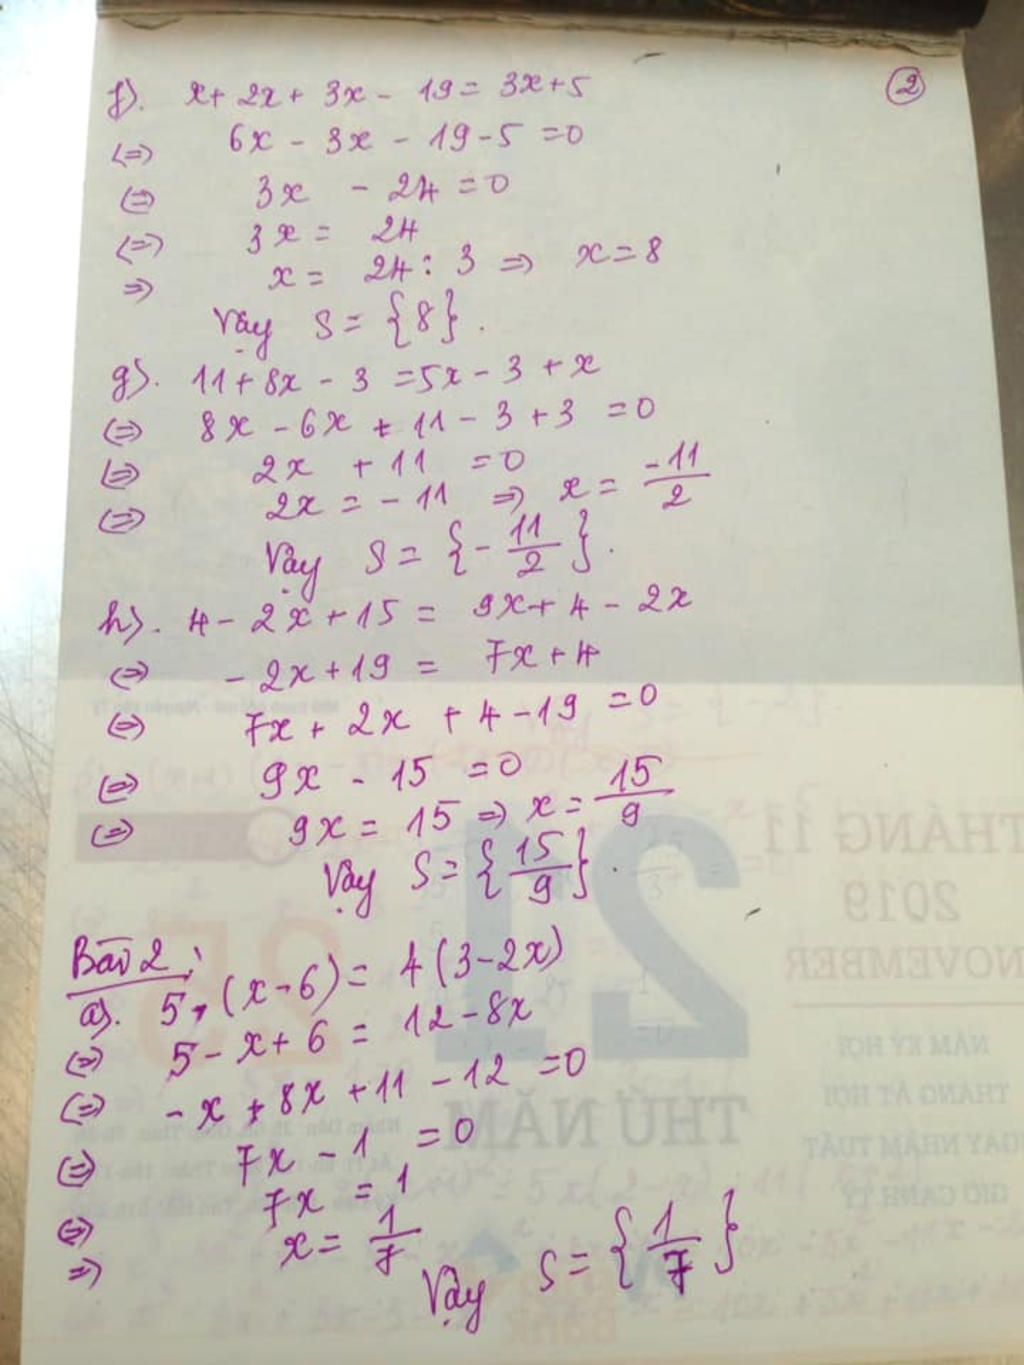 ②
f). x + 2x + 3x - 19 = 3x + 5
(=) 6x - 3x - 19 - 5 = 0
(=) 3x - 24 = 0
(=) 3x = 24
=) x = 24 : 3 =) x = 8
Vậy S = {8}.
g). 11 + 8x - 3 = 5x - 3 + x
(=) 8x - 6x + 11 - 3 + 3 = 0
(=) 2x + 11 = 0
(=) 2x = -11 =) x = -11/2
Vậy S = {-11/2}.
h). 4 - 2x + 15 = 9x + 4 - 2x
(=) -2x + 19 = 7x + 4
(=) 7x + 2x + 4 - 19 = 0
(=) 9x - 15 = 0
(=) 9x = 15 =) x = 15/9
Vậy S = {15/9}.
Bài 2:
a). 5 - (x - 6) = 4(3 - 2x)
(=) 5 - x + 6 = 12 - 8x
(=) -x + 8x + 11 - 12 = 0
(=) 7x - 1 = 0
(=) 7x = 1
=) x = 1/7
Vậy S = {1/7}
THÁNG 11
2019
NOVEMBER
21
THỨ NĂM
NĂM KỶ HỢI
THÁNG ẤT HỢI
NGÀY NHÂM TUẤT
GIỜ CANH TÝ